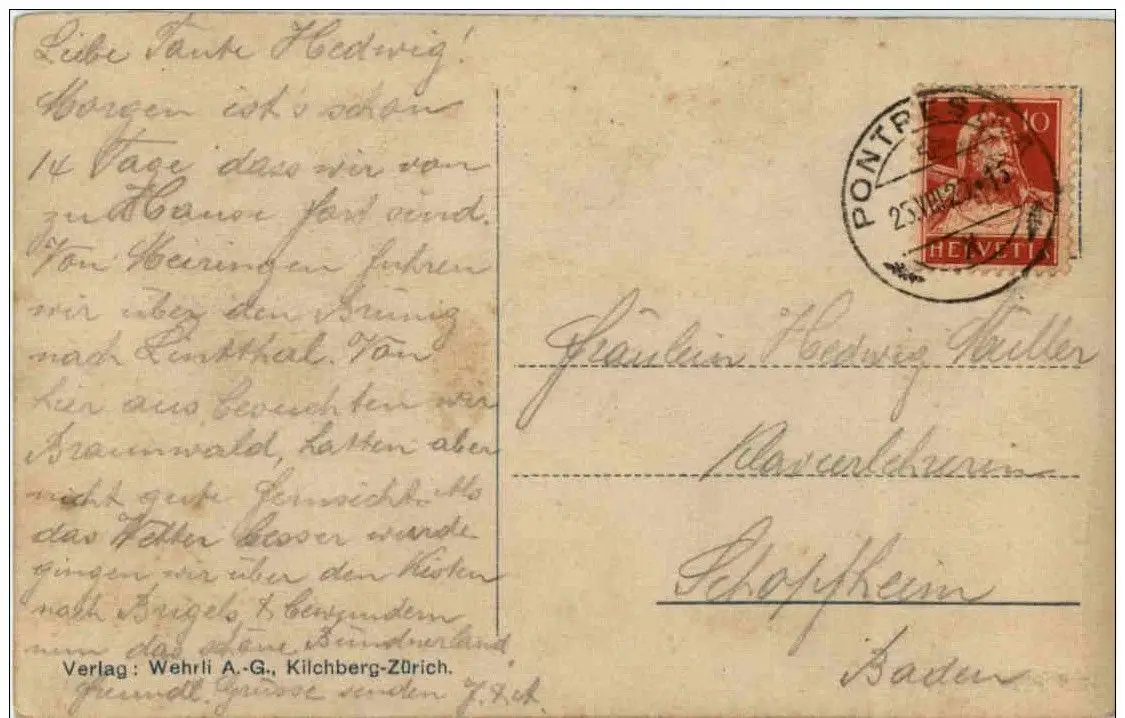 Liebe Tante Hedwig!
Morgen ist's schon
14 Tage dass wir von
zu Hause fort sind.
Von Meiringen fuhren
wir über den Brünig
nach Lintthal. Von
hier aus besuchten wir
Braunwald, hatten aber
nicht gute Fernsicht. Als
das Wetter besser wurde
gingen wir über den Kisten
nach Brigels & bewundern
nun das schöne Bündnerland
Verlag: Wehrli A.-G., Kilchberg-Zürich.
freundl. Grüsse senden J. & A.
PONTRESINA
25.VIII.2 15
10
HELVETI
Fräulein Hedwig Müller
Klavierlehrerin
Schopfheim
Baden